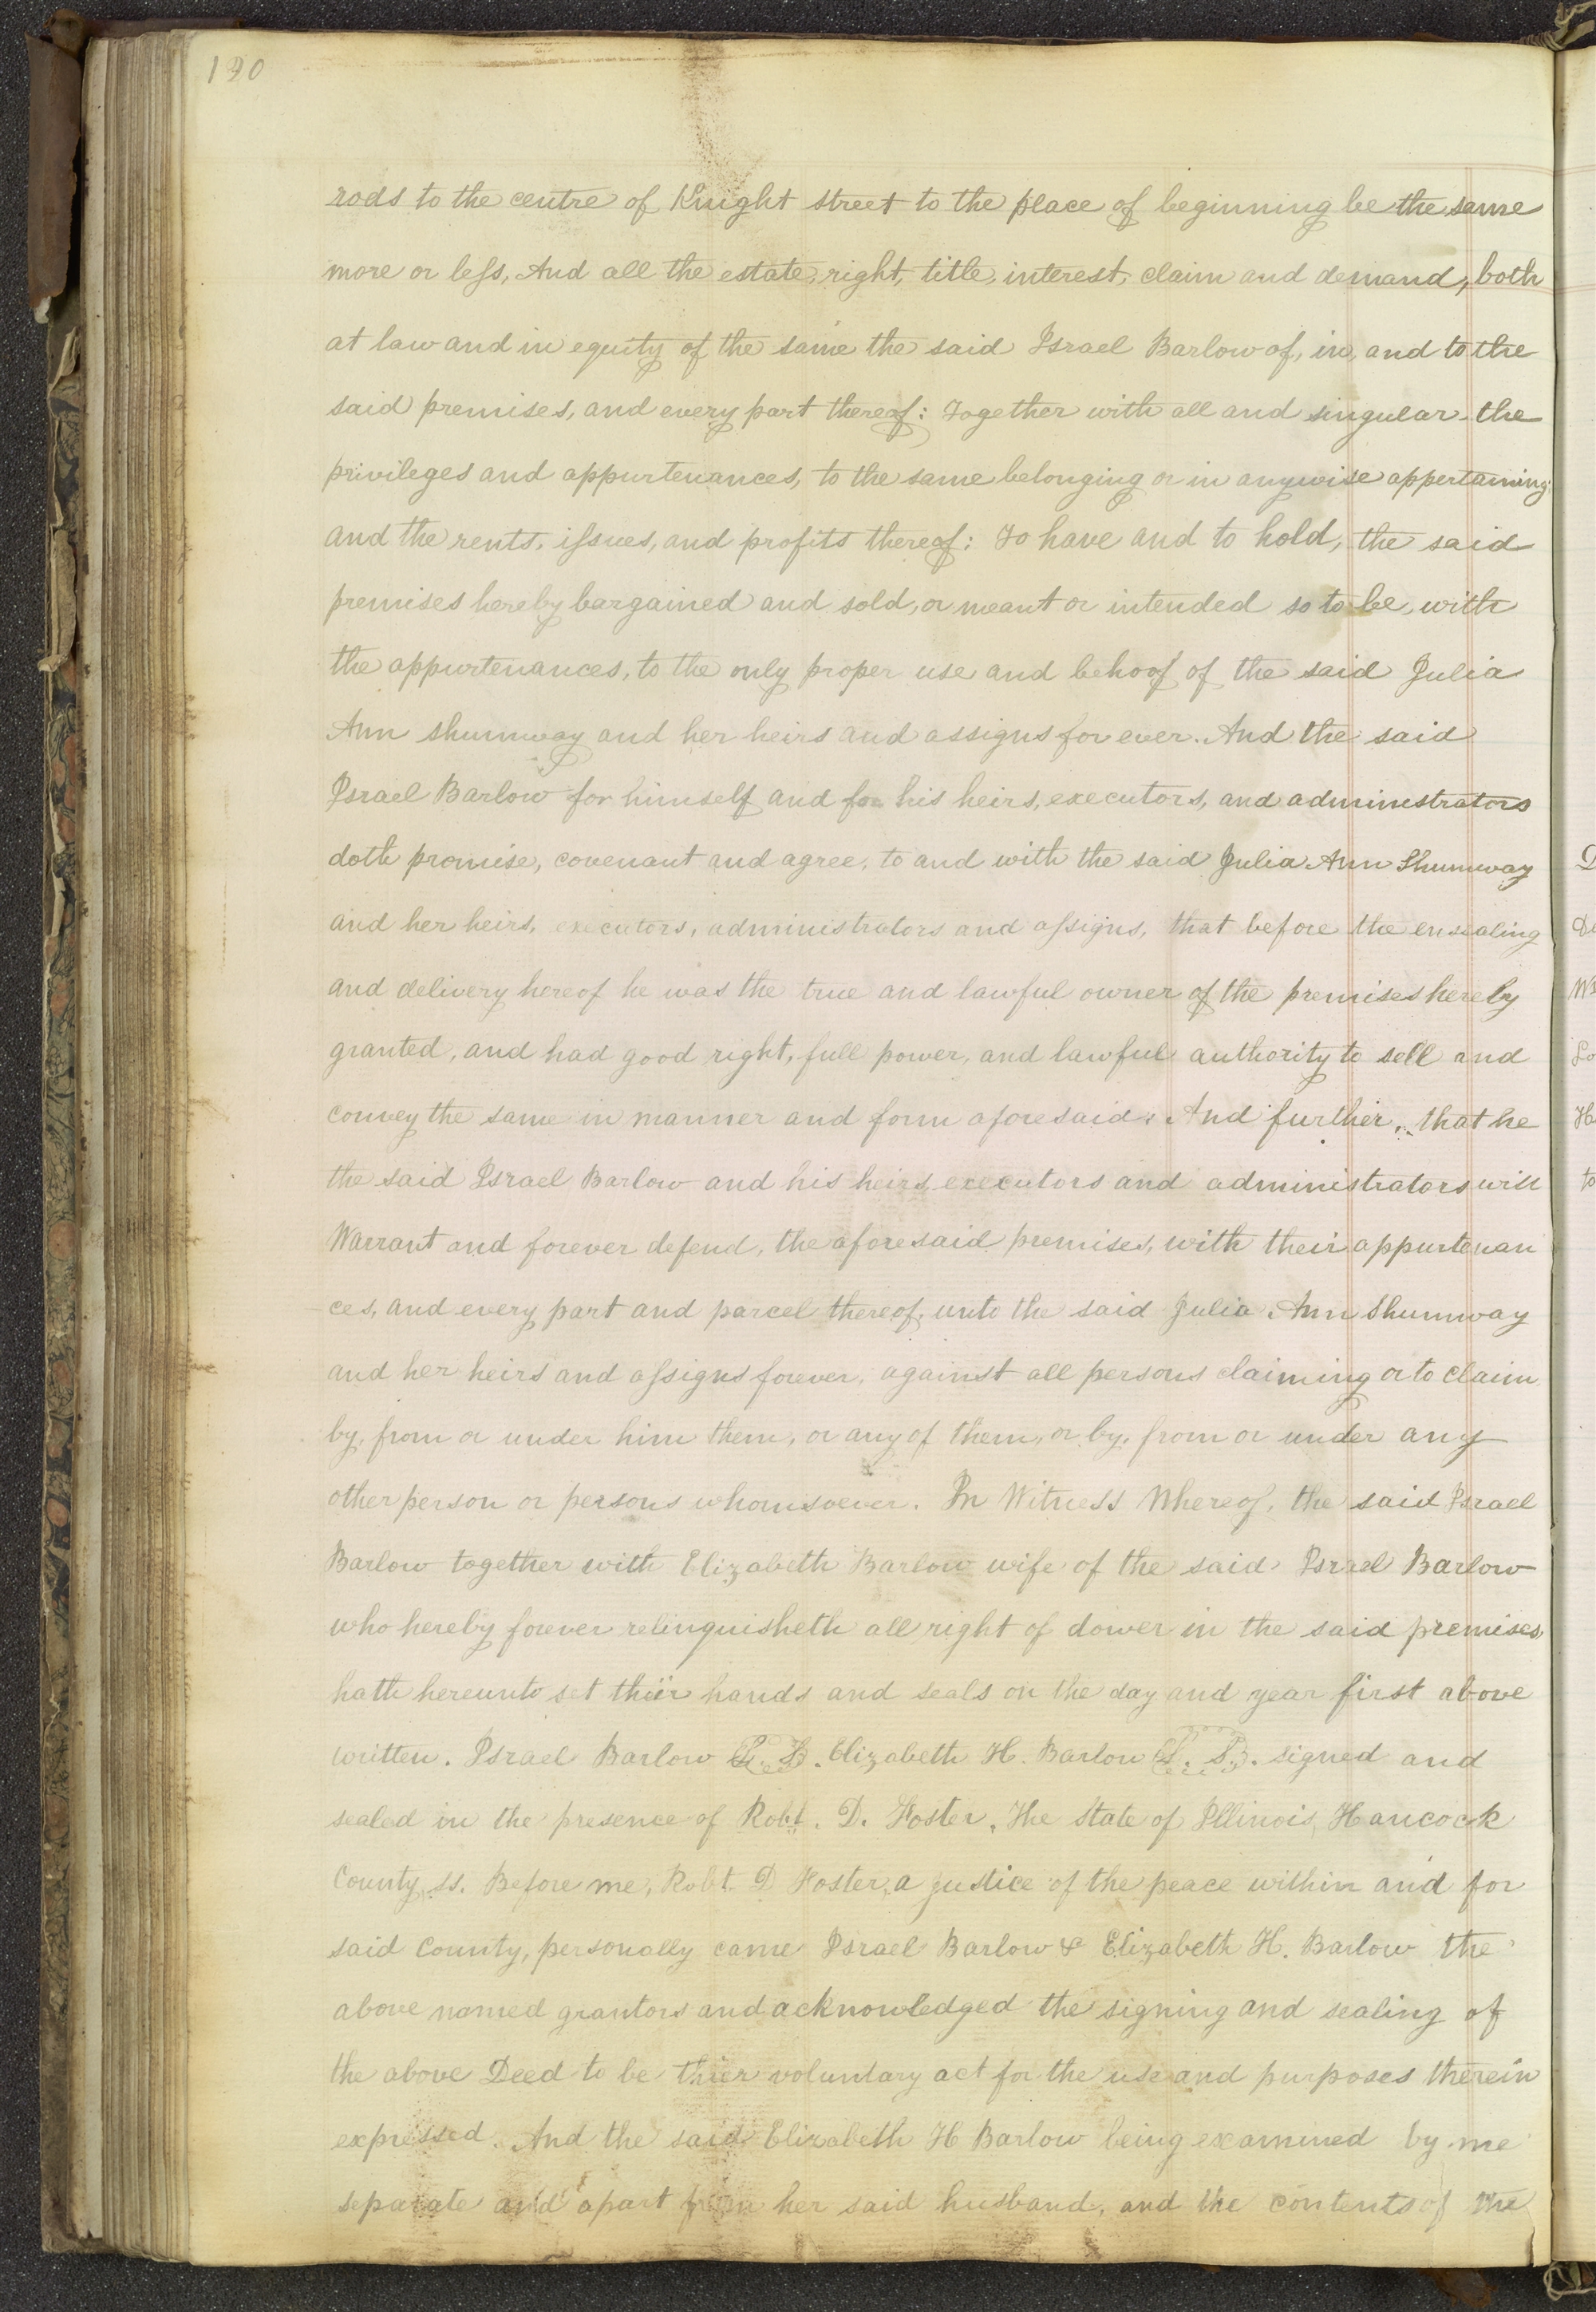 190
rods to the centre of Knight street to the place of beginning be the same
more or less, And all the estate, right, title, interest, claim and demand, both
at law and in equity of the same the said Israel Barlow of, in, and to the
said premises, and every part thereof: Together with all and singular the
privileges and appurtenances, to the same belonging or in anywise appertaining
and the rents, issues, and profits thereof: To have and to hold, the said
premises hereby bargained and sold, or meant or intended so to be, with
the appurtenances, to the only proper use and behoof of the said Julia
Ann Shumway and her heirs and assigns for ever. And the said
Israel Barlow for himself and for his heirs, executors, and administrators
doth promise, covenant and agree, to and with the said Julia Ann Shumway
and her heirs, executors, administrators and assigns, that before the ensealing
and delivery hereof he was the true and lawful owner of the premises hereby
granted, and had good right, full power, and lawful authority to sell and
convey the same in manner and form aforesaid. And further, that he
the said Israel Barlow and his heirs, executors and administrators will
Warrant and forever defend, the aforesaid premises, with their appurtenan
-ces, and every part and parcel thereof, unto the said Julia Ann Shumway
and her heirs and assigns forever, against all persons claiming or to claim
by, from or under him them, or any of them, or by, from or under any
other person or persons whomsoever. In Witness Whereof, the said Israel
Barlow together with Elizabeth Barlow wife of the said Israel Barlow
who hereby forever relinquisheth all right of dower in the said premises,
hath hereunto set thier hands and seals on the day and year first above
written. Israel Barlow L. S. Elizabeth H. Barlow L. S. signed and
sealed in the presence of Robt. D. Foster. The State of Illinois, Hancock
County, ss. Before me, Robt. D Foster, a justice of the peace within and for
said County, personally came Israel Barlow & Elizabeth H. Barlow the
above named grantors and acknowledged the signing and sealing of
the above Deed to be thier voluntary act for the use and purposes therein
expressed. And the said Elizabeth H Barlow being examined by me
separate and apart from her said husband, and the contents of the